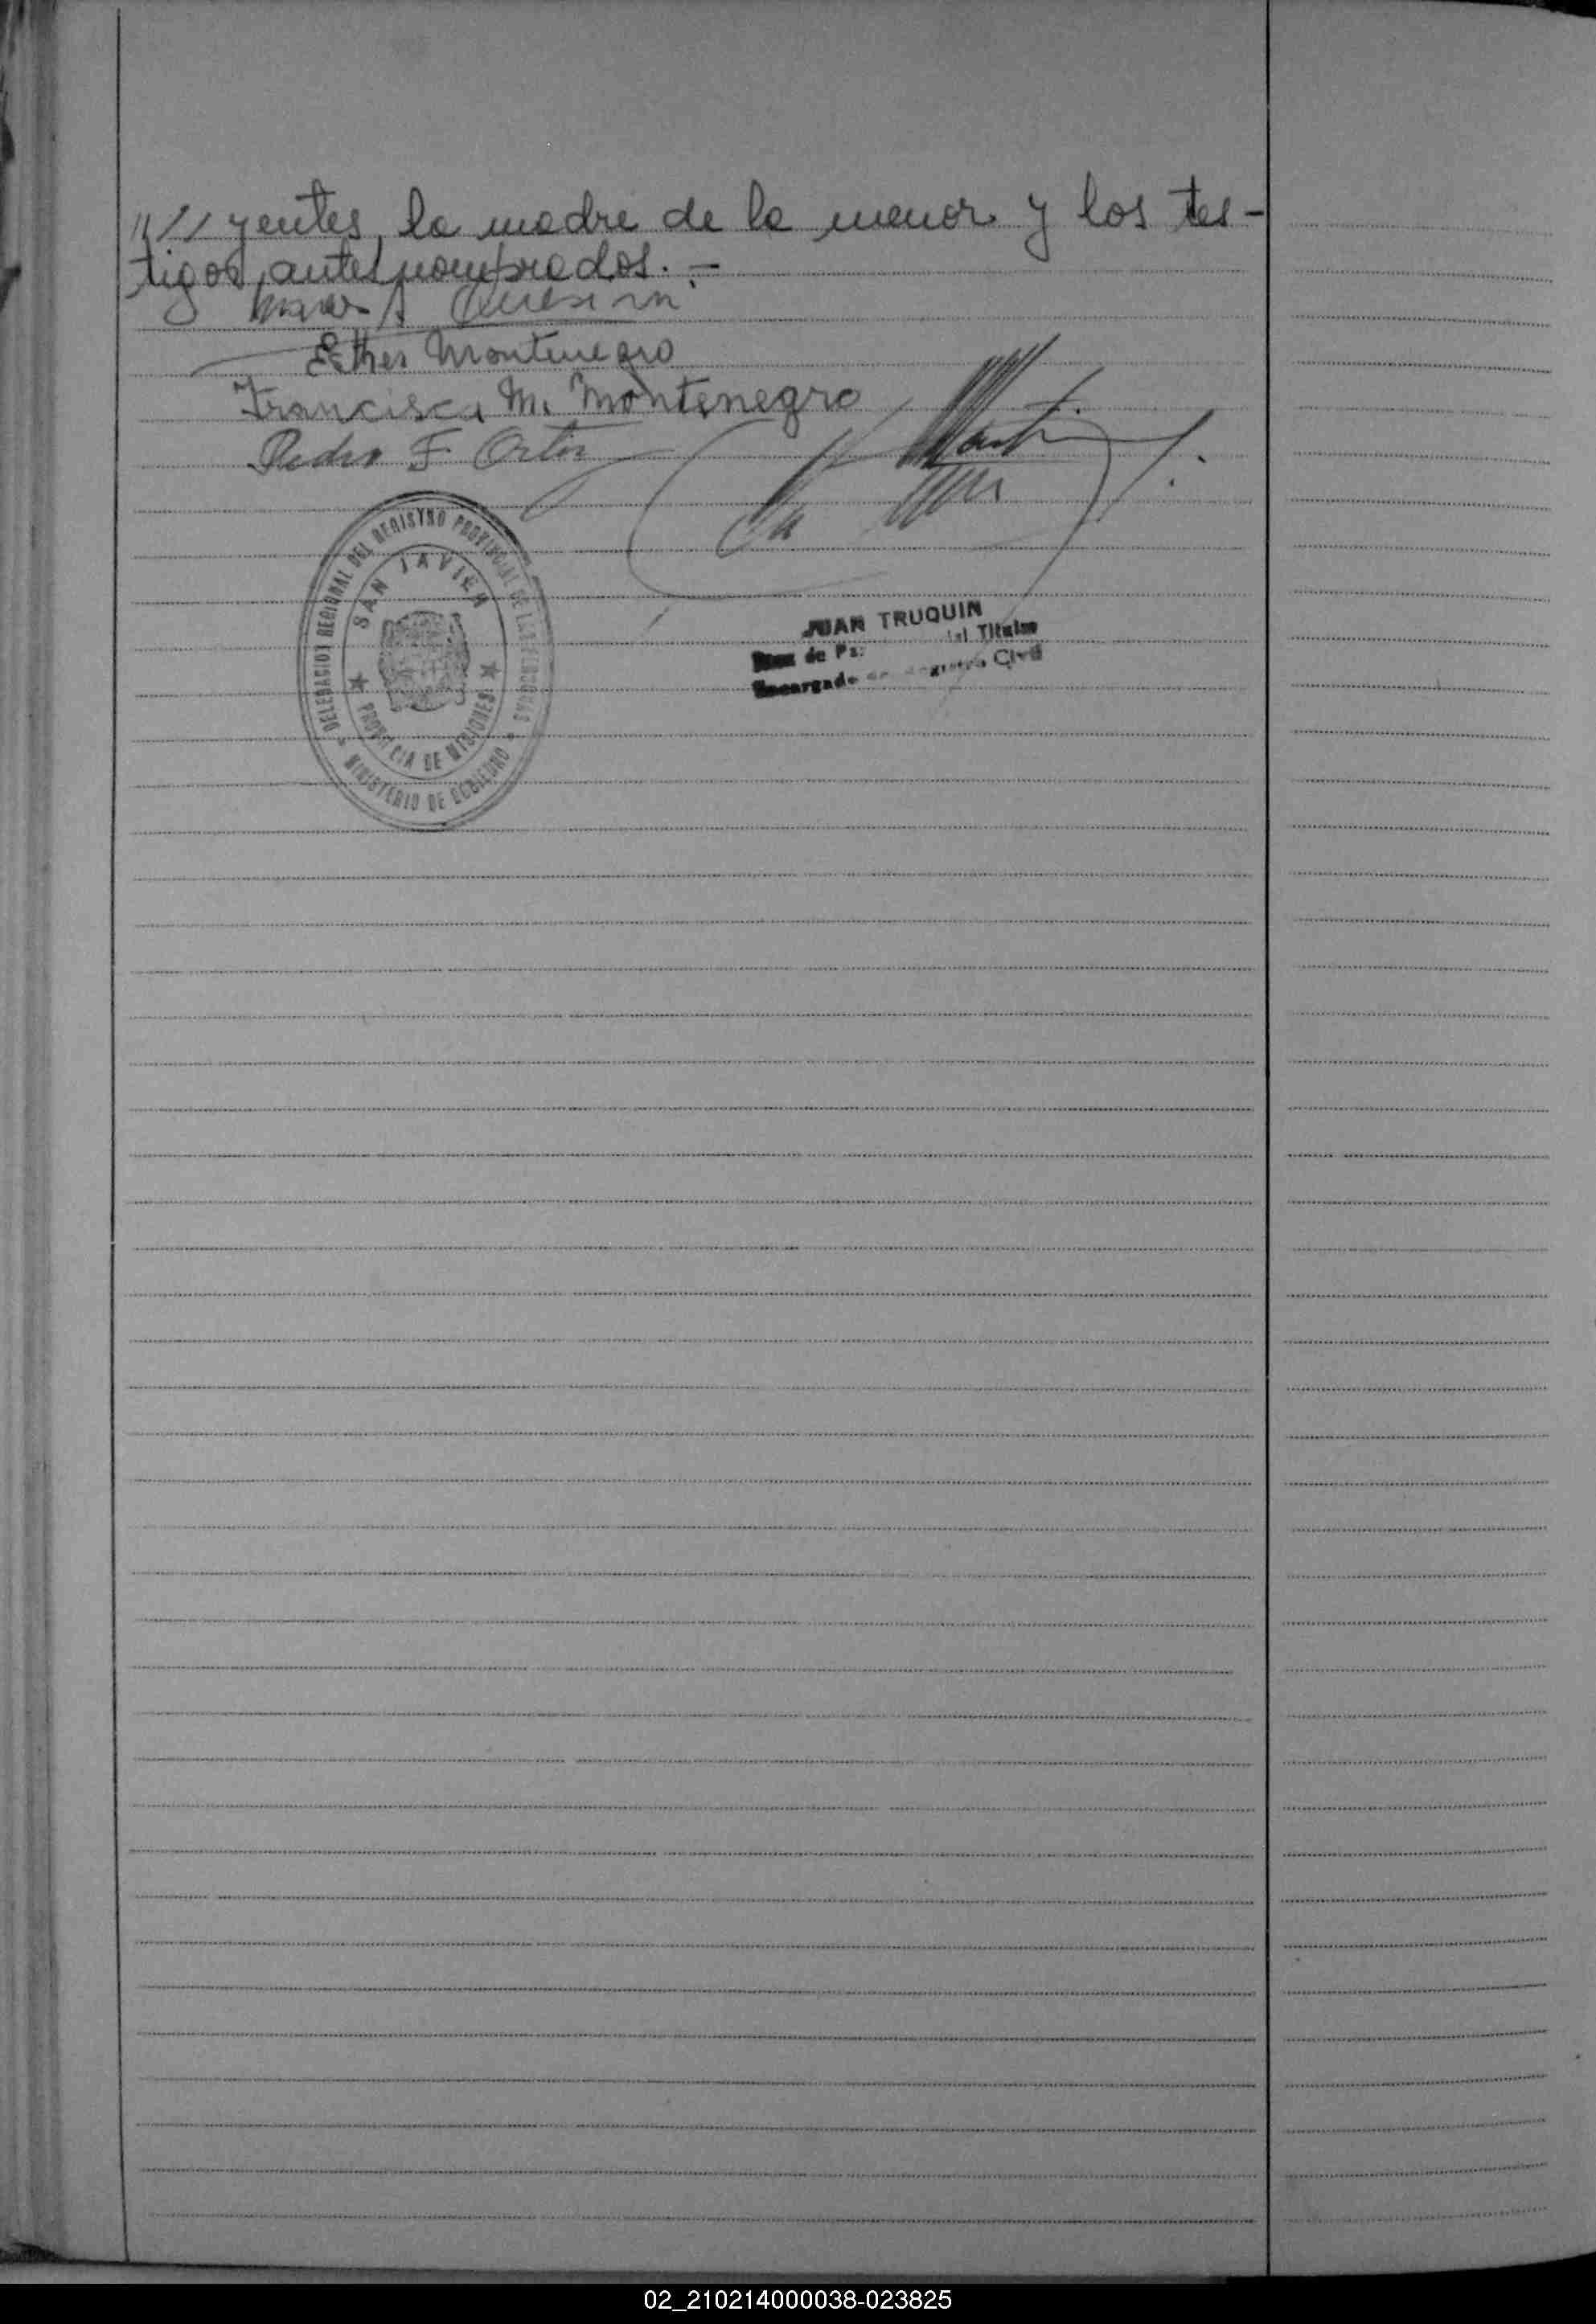 //// yentes, la madre de la menor y los tes-
tigos antes nombrados. -
Esther Montenegro
Francisca M. Montenegro
Pedro F Ortiz
DELEGACION REGIONAL DEL REGISTRO PROVINCIAL DE LAS PERSONAS
SAN JAVIER
PROVINCIA DE MISIONES
MINISTERIO DE GOBIERNO
JUAN TRUQUIN
de Titular
Encargado Registro Civil
02_210214000038-023825